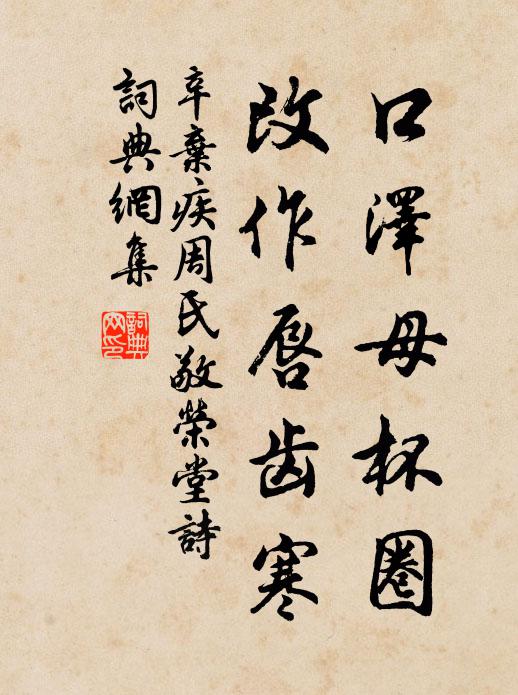 口澤母杯圈
改作唇齒寒
辛棄疾周氏敬榮堂詩
詞典網集
詞典
網印